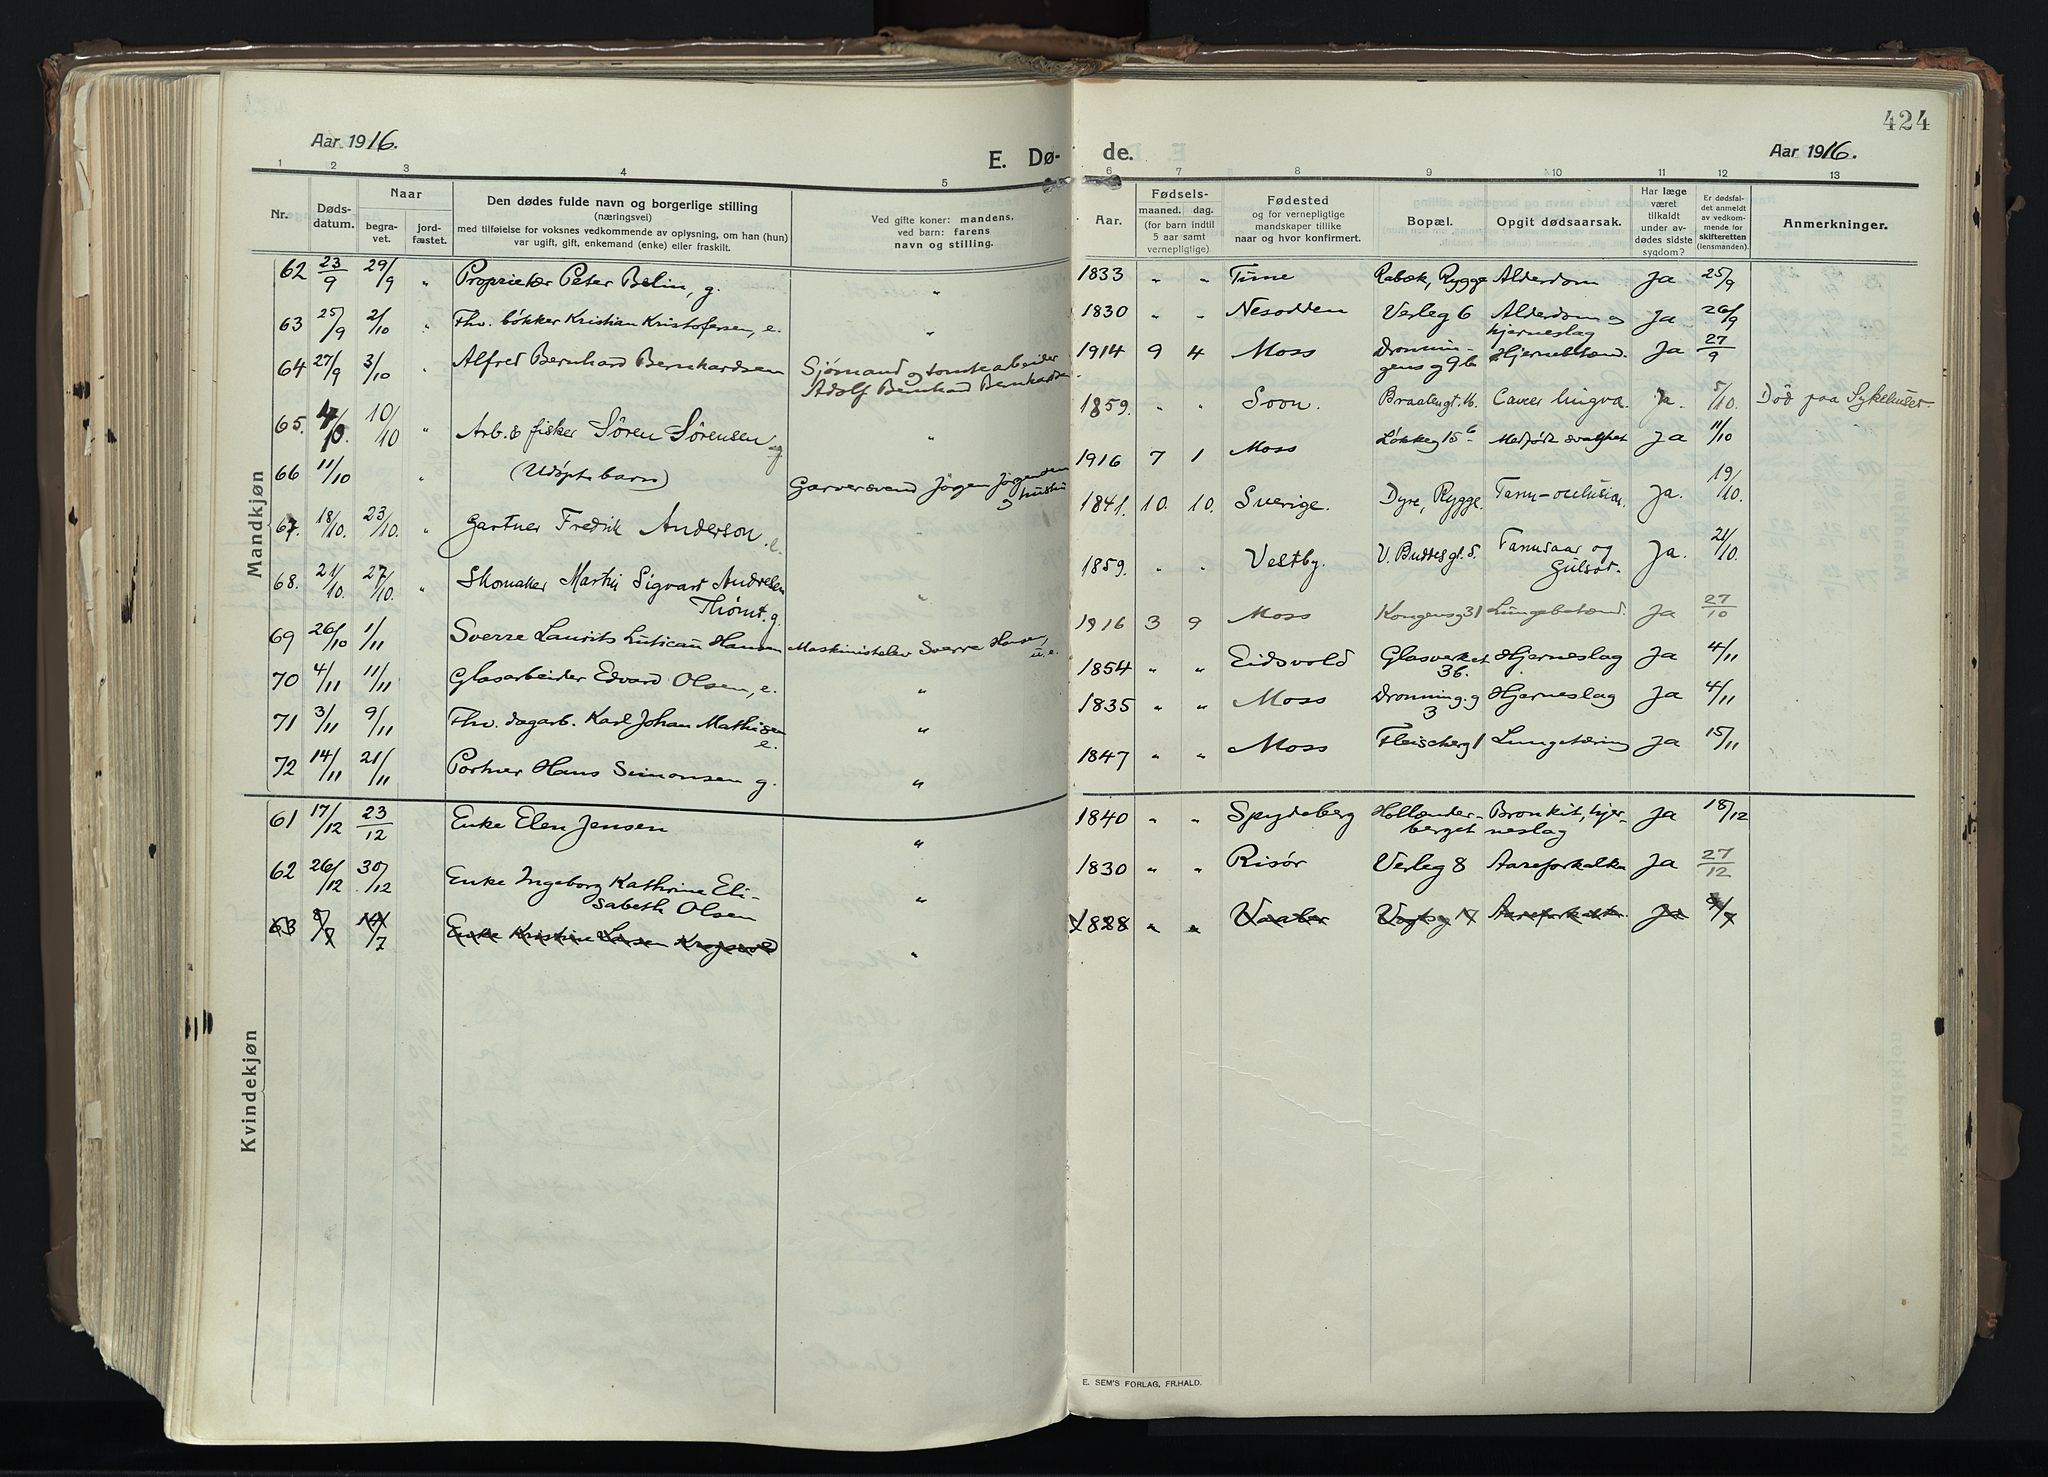 424
Aar 1916.
E. Dø- de.
Aar 1916.
1 2 3 4 5 6 7 8 9 10 11 12 13
Nr.
Dødsdatum.
Naar
begravet.
jordfæstet.
Den dødes fulde navn og borgerlige stilling
(næringsvei)
med tilføielse for voksnes vedkommende av oplysning, om han (hun)
var ugift, gift, enkemand (enke) eller fraskilt.
Ved gifte koner: mandens,
ved barn: farens
navn og stilling.
Aar.
Fødsels-
maaned. dag.
(for barn indtil
5 aar samt
vernepligtige)
Fødested
og for vernepligtige
mandskaper tillike
naar og hvor konfirmert.
Bopæl.
Opgit dødsaarsak.
Har læge
været
tilkaldt
under av-
dødes sidste
sygdom?
Er dødsfal-
det anmeldt
av vedkom-
mende for
skifteretten
(lensmanden).
Anmerkninger.
Mandkjøn
62 23/9 29/9 " Proprietær Peter Belin, g. " 1833 " " Tune Rabæk, Rygge Alderdom Ja 25/9
63 25/9 2/10 " Fhv. bøkker Kristian Kristofersen, e. " 1830 " " Nesodden Verleg 6 Alderdom og
hjerneslag Ja 26/9
64 27/9 3/10 " Alfred Bernhard Bernhardsen Sjømand og tomtearbeider
Adolf Bernhard Bernhardsen 1914 9 4 Moss Dronnin-
gens g 9b Hjernebetænd. Ja 27/9
65. 4/10. 10/10 " Arb. & fisker Sören Sörensen g " 1859. " " Soon. Braatengt. 16. Cancer lingva. Ja. 5/10. Död paa Sykehuset.
66 11/10 " (Udöpt barn) Garversvend Jörgen Jörgensen
1916 7 1 Moss Løkkeg 15b Medfödt svaghet Ja 11/10
67. 18/10. 23/10. " Gartner Fredrik Anderson. e. 1841. 10. 10. Sverige. Dyre, Rygge. Ja. 19/10.
68. 21/10. 27/10. " Skomaker Martin Sigvart Andresen
g. " 1859. " " Vestby. Gulsot. Ja. 21/10.
69 26/10 1/11 Sverre Laurits Hansen Maskinistelev Sverre Hansen,
u. e. 1916 3 9 Moss Kongensg 31 Lungebetænd. Ja 27/10
70 4/11 11/11 Glasarbeider Edvard Olsen, e. " 1854 " " Eidsvold Glasverket
36. Hjerneslag Ja 4/11
71 3/11 9/11 Fhv. dagarb. Karl Johan Mathisen
e. " 1835 " " Moss Dronning. g
3 Hjerneslag Ja 4/11
72 14/11 21/11 Portner Hans Simonsen g. " 1847 " " Moss Fleischerg 1 Lungetæring Ja 15/11
Kvindekjøn
61 17/12 23/12 Enke Elen Jensen " 1840 " " Spydeberg Hollænder-
berget Bronkit, hjer-
neslag Ja 18/12
62 26/12 30/12 Enke Ingeborg Kathrine Eli-
sabeth Olsen " 1830 " " Risør Verleg 8 Aareforkalkn Ja 27/12
63 Enke Kristine Larsen " 1828 " " Vaaler 17 Aareforkalkn. Ja
E. SEM'S FORLAG, FR.HALD.